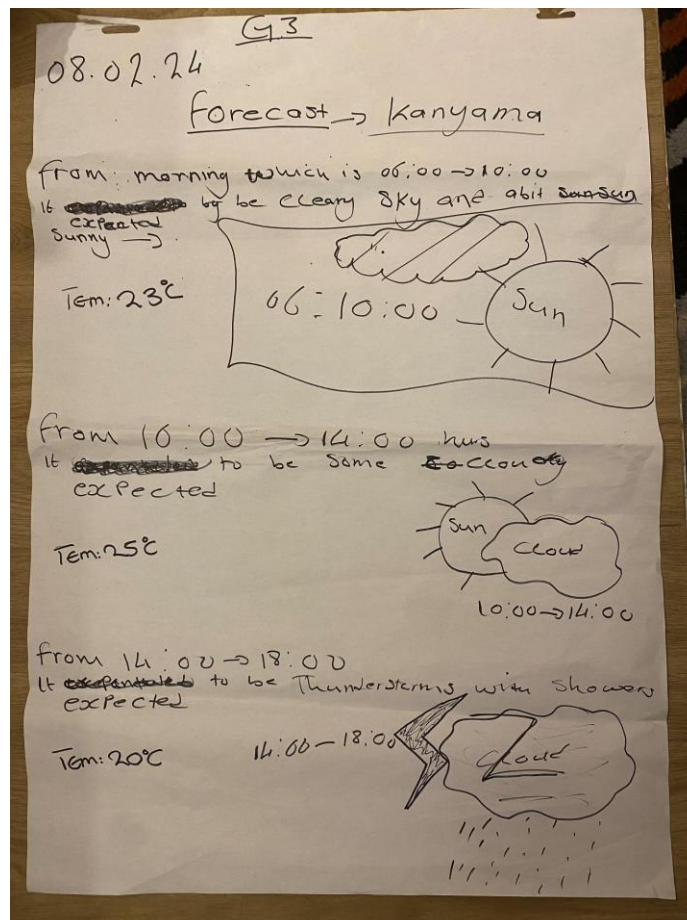 G3
08.02.24
Forecast → Kanyama
from: morning which is 06:00 → 10:00
It expected by be Cleary Sky and abit Sun
Sunny →
Tem: 23°C
06 - 10:00
Sun
from 10:00 → 14:00 hrs
It expected to be Some
Tem: 25°C
Sun
Cloud
10:00 → 14:00
from 14:00 → 18:00
It expected to be Thunderstorms with Showers
Tem: 20°C
14:00 - 18:00
Cloud